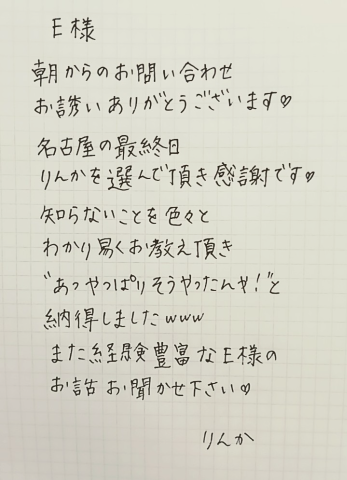 E様
朝からのお問い合わせ
お誘いありがとうございます♡
名古屋の最終日
りんかを選んで頂き感謝です♡
知らないことを色々と
わかり易くお教え頂き
"あっやっぱりそうやったんや!"と
納得しましたwww
また経験豊富なE様の
お話お聞かせ下さい♡
りんか